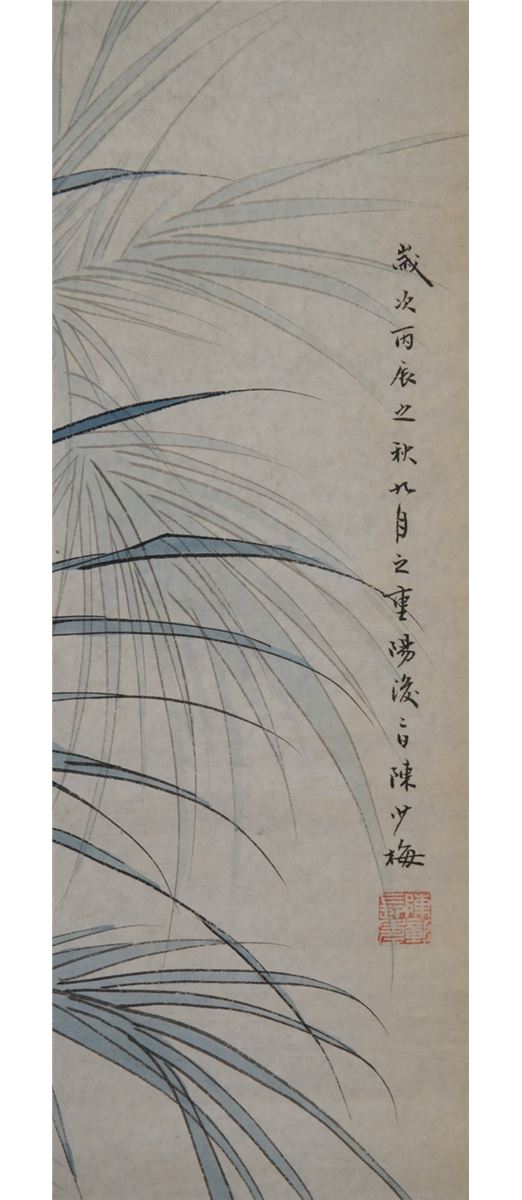 歲次丙辰之秋九月之重陽後二日陳少梅